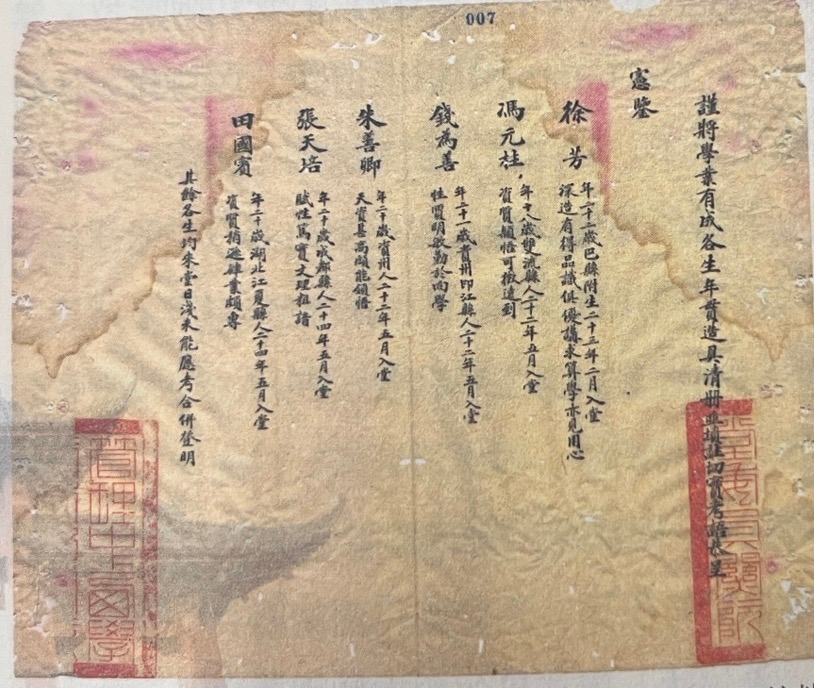 007
謹將學業有成各生年貫造具清冊並填註切實考語恭呈
憲鑒
徐芳
年二十二歲巴縣附生二十五年二月入堂
深造有得品識俱優講求算學亦見用心
馮元桂
年十八歲雙流縣人二十二年五月入堂
資質穎悟可徵遠到
錢為善
年二十一歲貴州印江縣人二十二年五月入堂
性質明敏勤於向學
朱善卿
年二十歲資州人二十二年五月入堂
天資甚高頗能領悟
張天培
年二十歲成都縣人二十四年五月入堂
賦性篤實文理粗諳
田國賓
年二十歲湖北江夏縣人二十四年五月入堂
資質稍遜肄業頗專
其餘各生均來堂日淺未能應考合併登明
管理中西學